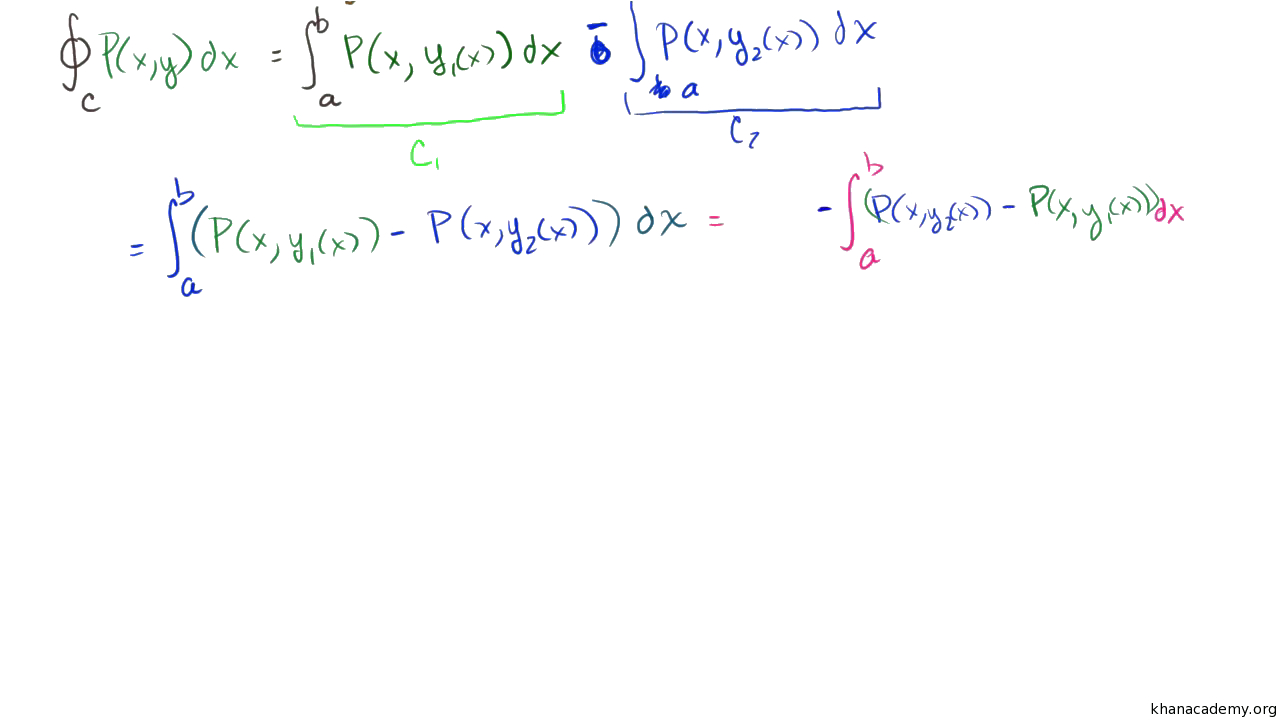 ∮_C P(x,y) dx = ∫_a^b P(x, y₁(x)) dx - ∫_a P(x, y₂(x)) dx
C₁ C₂
= ∫_a^b (P(x, y₁(x)) - P(x, y₂(x))) dx = - ∫_a^b (P(x, y₂(x)) - P(x, y₁(x))) dx
khanacademy.org